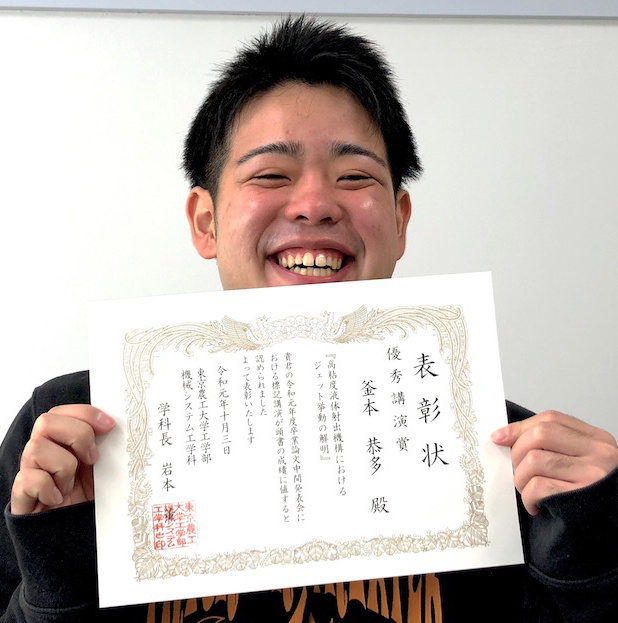 表彰状
優秀講演賞
釜本 恭多 殿
『高粘度液体射出機構における
ジェット挙動の解明』
貴君の令和元年度卒業論文中間発表会に
おける標記講演が頭書の成績に値すると
認められました
よって表彰いたします
令和元年十月三日
東京農工大学工学部
機械システム工学科
学科長 岩本
東京農工
大学工学部
機械システム
工学科之印